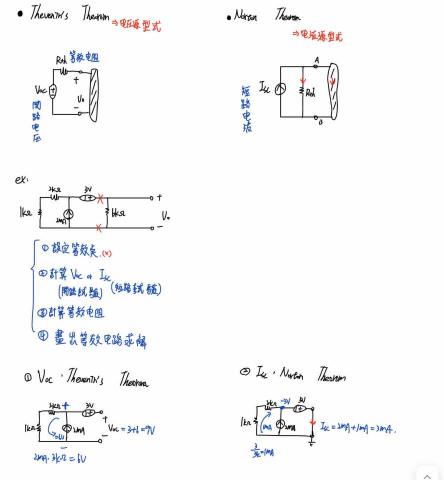 Thevenin's Theorem
⇒電壓源型式
Rth 等效電阻
Voc
+
Vo
-
開路電壓
Norton Theorem
⇒電流源型式
A
Isc
Rth
B
短路電流
ex:
2kΩ
3V
1kΩ
2mA
6kΩ
+
Vo
-
① 設定等效點.(x)
② 計算 Voc or Isc
(開路試驗) (短路試驗)
③ 計算等效電阻
④ 畫出等效電路求解
① Voc · Thevenin's Theorem
2kΩ
+
3V
1kΩ
6V
2mA
-
+
Voc = 3+6 = 9V
-
2mA · 3kΩ = 6V
② Isc · Norton Theorem
2kΩ
-3V
3V
1kΩ
1mA
2mA
Isc = 2mA + 1mA = 3mA.
3/3k = 1mA